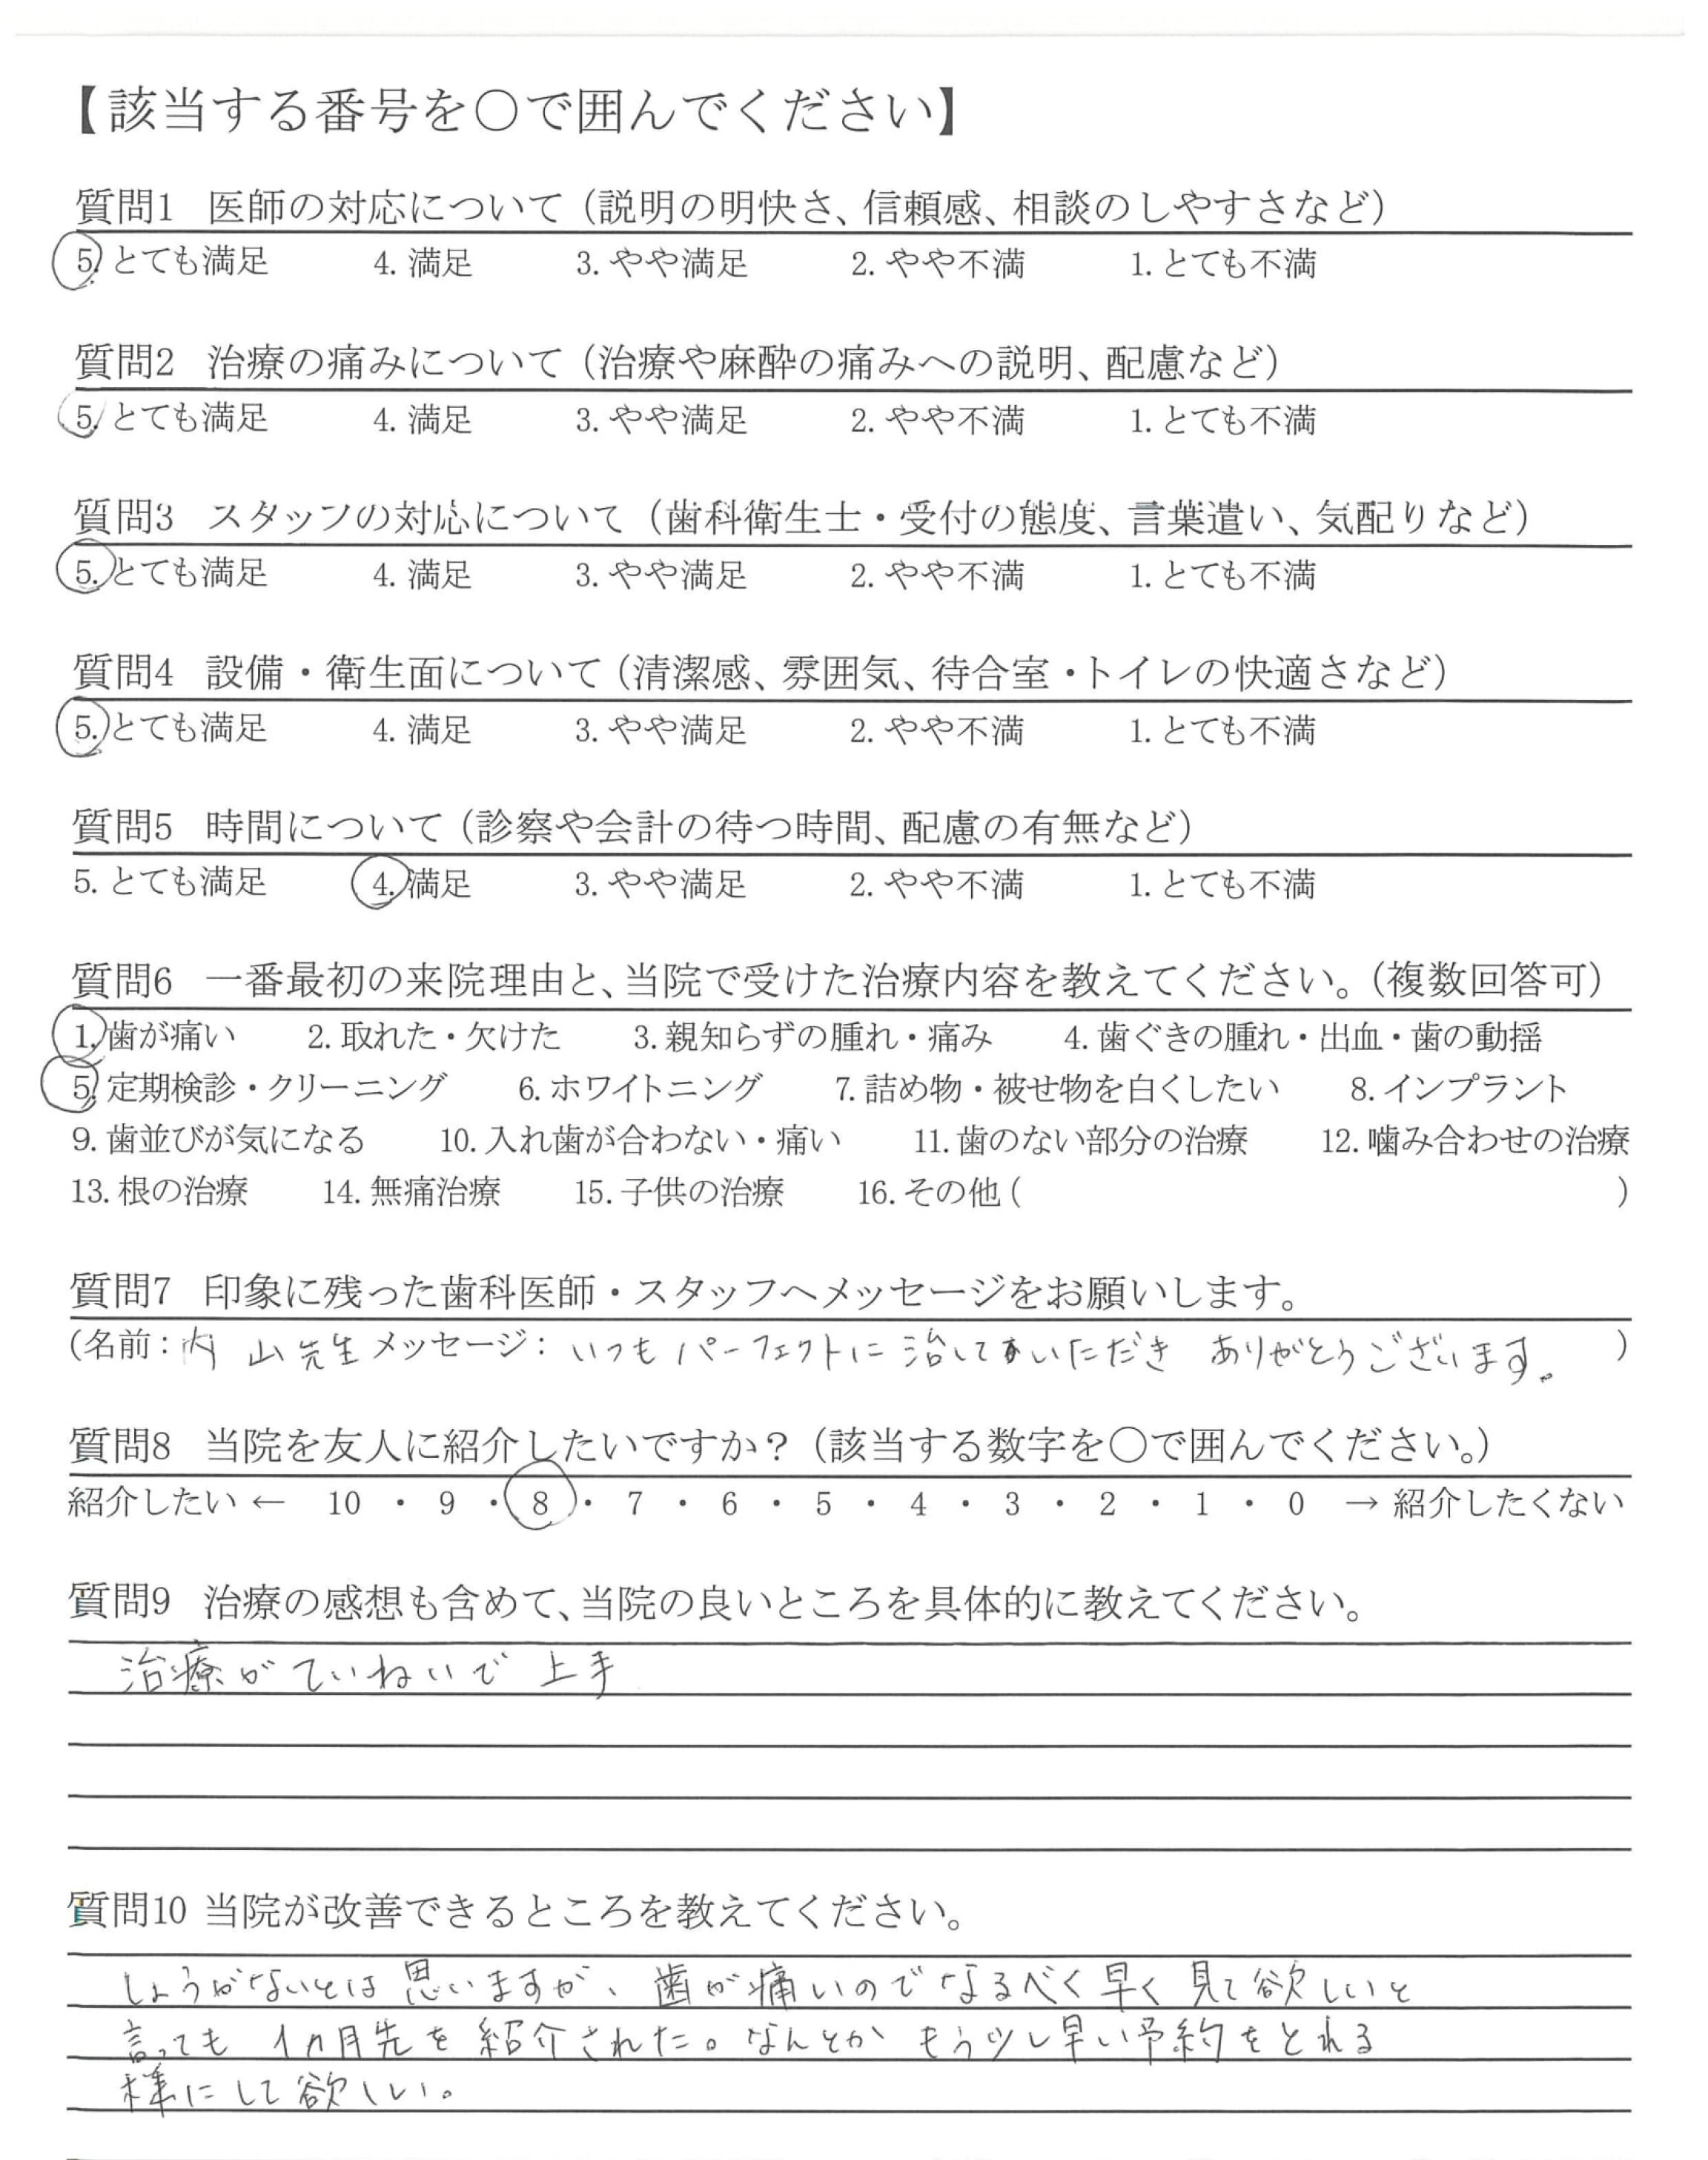 【該当する番号を〇で囲んでください】
質問1 医師の対応について（説明の明快さ、信頼感、相談のしやすさなど）
5. とても満足 4. 満足 3. やや満足 2. やや不満 1. とても不満
質問2 治療の痛みについて（治療や麻酔の痛みへの説明、配慮など）
5. とても満足 4. 満足 3. やや満足 2. やや不満 1. とても不満
質問3 スタッフの対応について（歯科衛生士・受付の態度、言葉遣い、気配りなど）
5. とても満足 4. 満足 3. やや満足 2. やや不満 1. とても不満
質問4 設備・衛生面について（清潔感、雰囲気、待合室・トイレの快適さなど）
5. とても満足 4. 満足 3. やや満足 2. やや不満 1. とても不満
質問5 時間について（診察や会計の待つ時間、配慮の有無など）
5. とても満足 4. 満足 3. やや満足 2. やや不満 1. とても不満
質問6 一番最初の来院理由と、当院で受けた治療内容を教えてください。（複数回答可）
1. 歯が痛い 2. 取れた・欠けた 3. 親知らずの腫れ・痛み 4. 歯ぐきの腫れ・出血・歯の動揺
5. 定期検診・クリーニング 6. ホワイトニング 7. 詰め物・被せ物を白くしたい 8. インプラント
9. 歯並びが気になる 10. 入れ歯が合わない・痛い 11. 歯のない部分の治療 12. 噛み合わせの治療
13. 根の治療 14. 無痛治療 15. 子供の治療 16. その他（ ）
質問7 印象に残った歯科医師・スタッフへメッセージをお願いします。
（名前：内山先生 メッセージ：いつもパーフェクトに治していただき ありがとうございます。）
質問8 当院を友人に紹介したいですか？（該当する数字を〇で囲んでください。）
紹介したい ← 10 ・ 9 ・ 8 ・ 7 ・ 6 ・ 5 ・ 4 ・ 3 ・ 2 ・ 1 ・ 0 → 紹介したくない
質問9 治療の感想も含めて、当院の良いところを具体的に教えてください。
治療がていねいで 上手
質問10 当院が改善できるところを教えてください。
しょうがないとは思いますが、歯が痛いのでなるべく早く見て欲しいと
言っても 1カ月先を紹介された。なんとか もう少し早い予約をとれる
様にして欲しい。